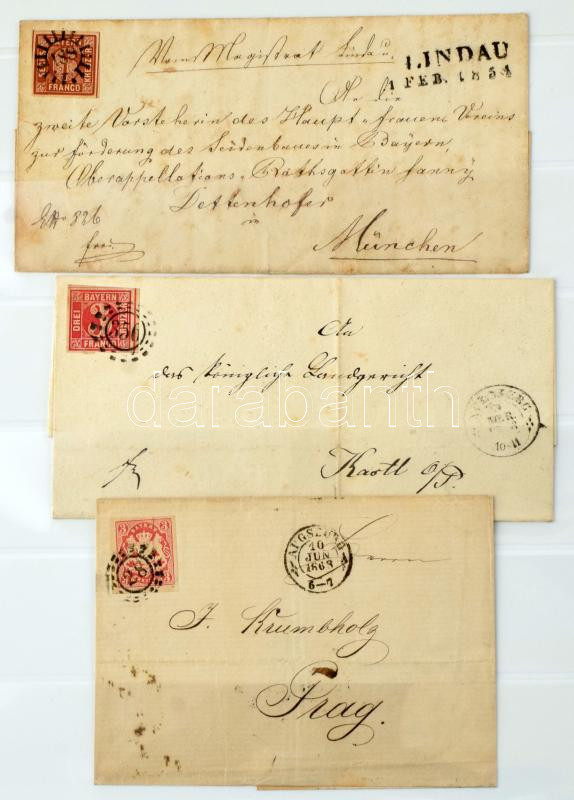 SECHS
KREUZER
FRANCO
LINDAU
1 FEB. 1854
Vom Magistrat Lindau.
An die
zweite Vorsteherin des Haupt-Frauen Vereins
zur Förderung des Seidenbaues in Bayern,
Oberappellations-Rathsgattin Fanny
Dettenhofer
in
München
326
BAYERN
DREI
FRANCO
356
An
das königliche Landgericht
Kastl o/P.
10-11
darabanth
3
3
28
AUGSBURG
10
JUN
1868
6-7
Herrn
J. Krumbholz
Prag.